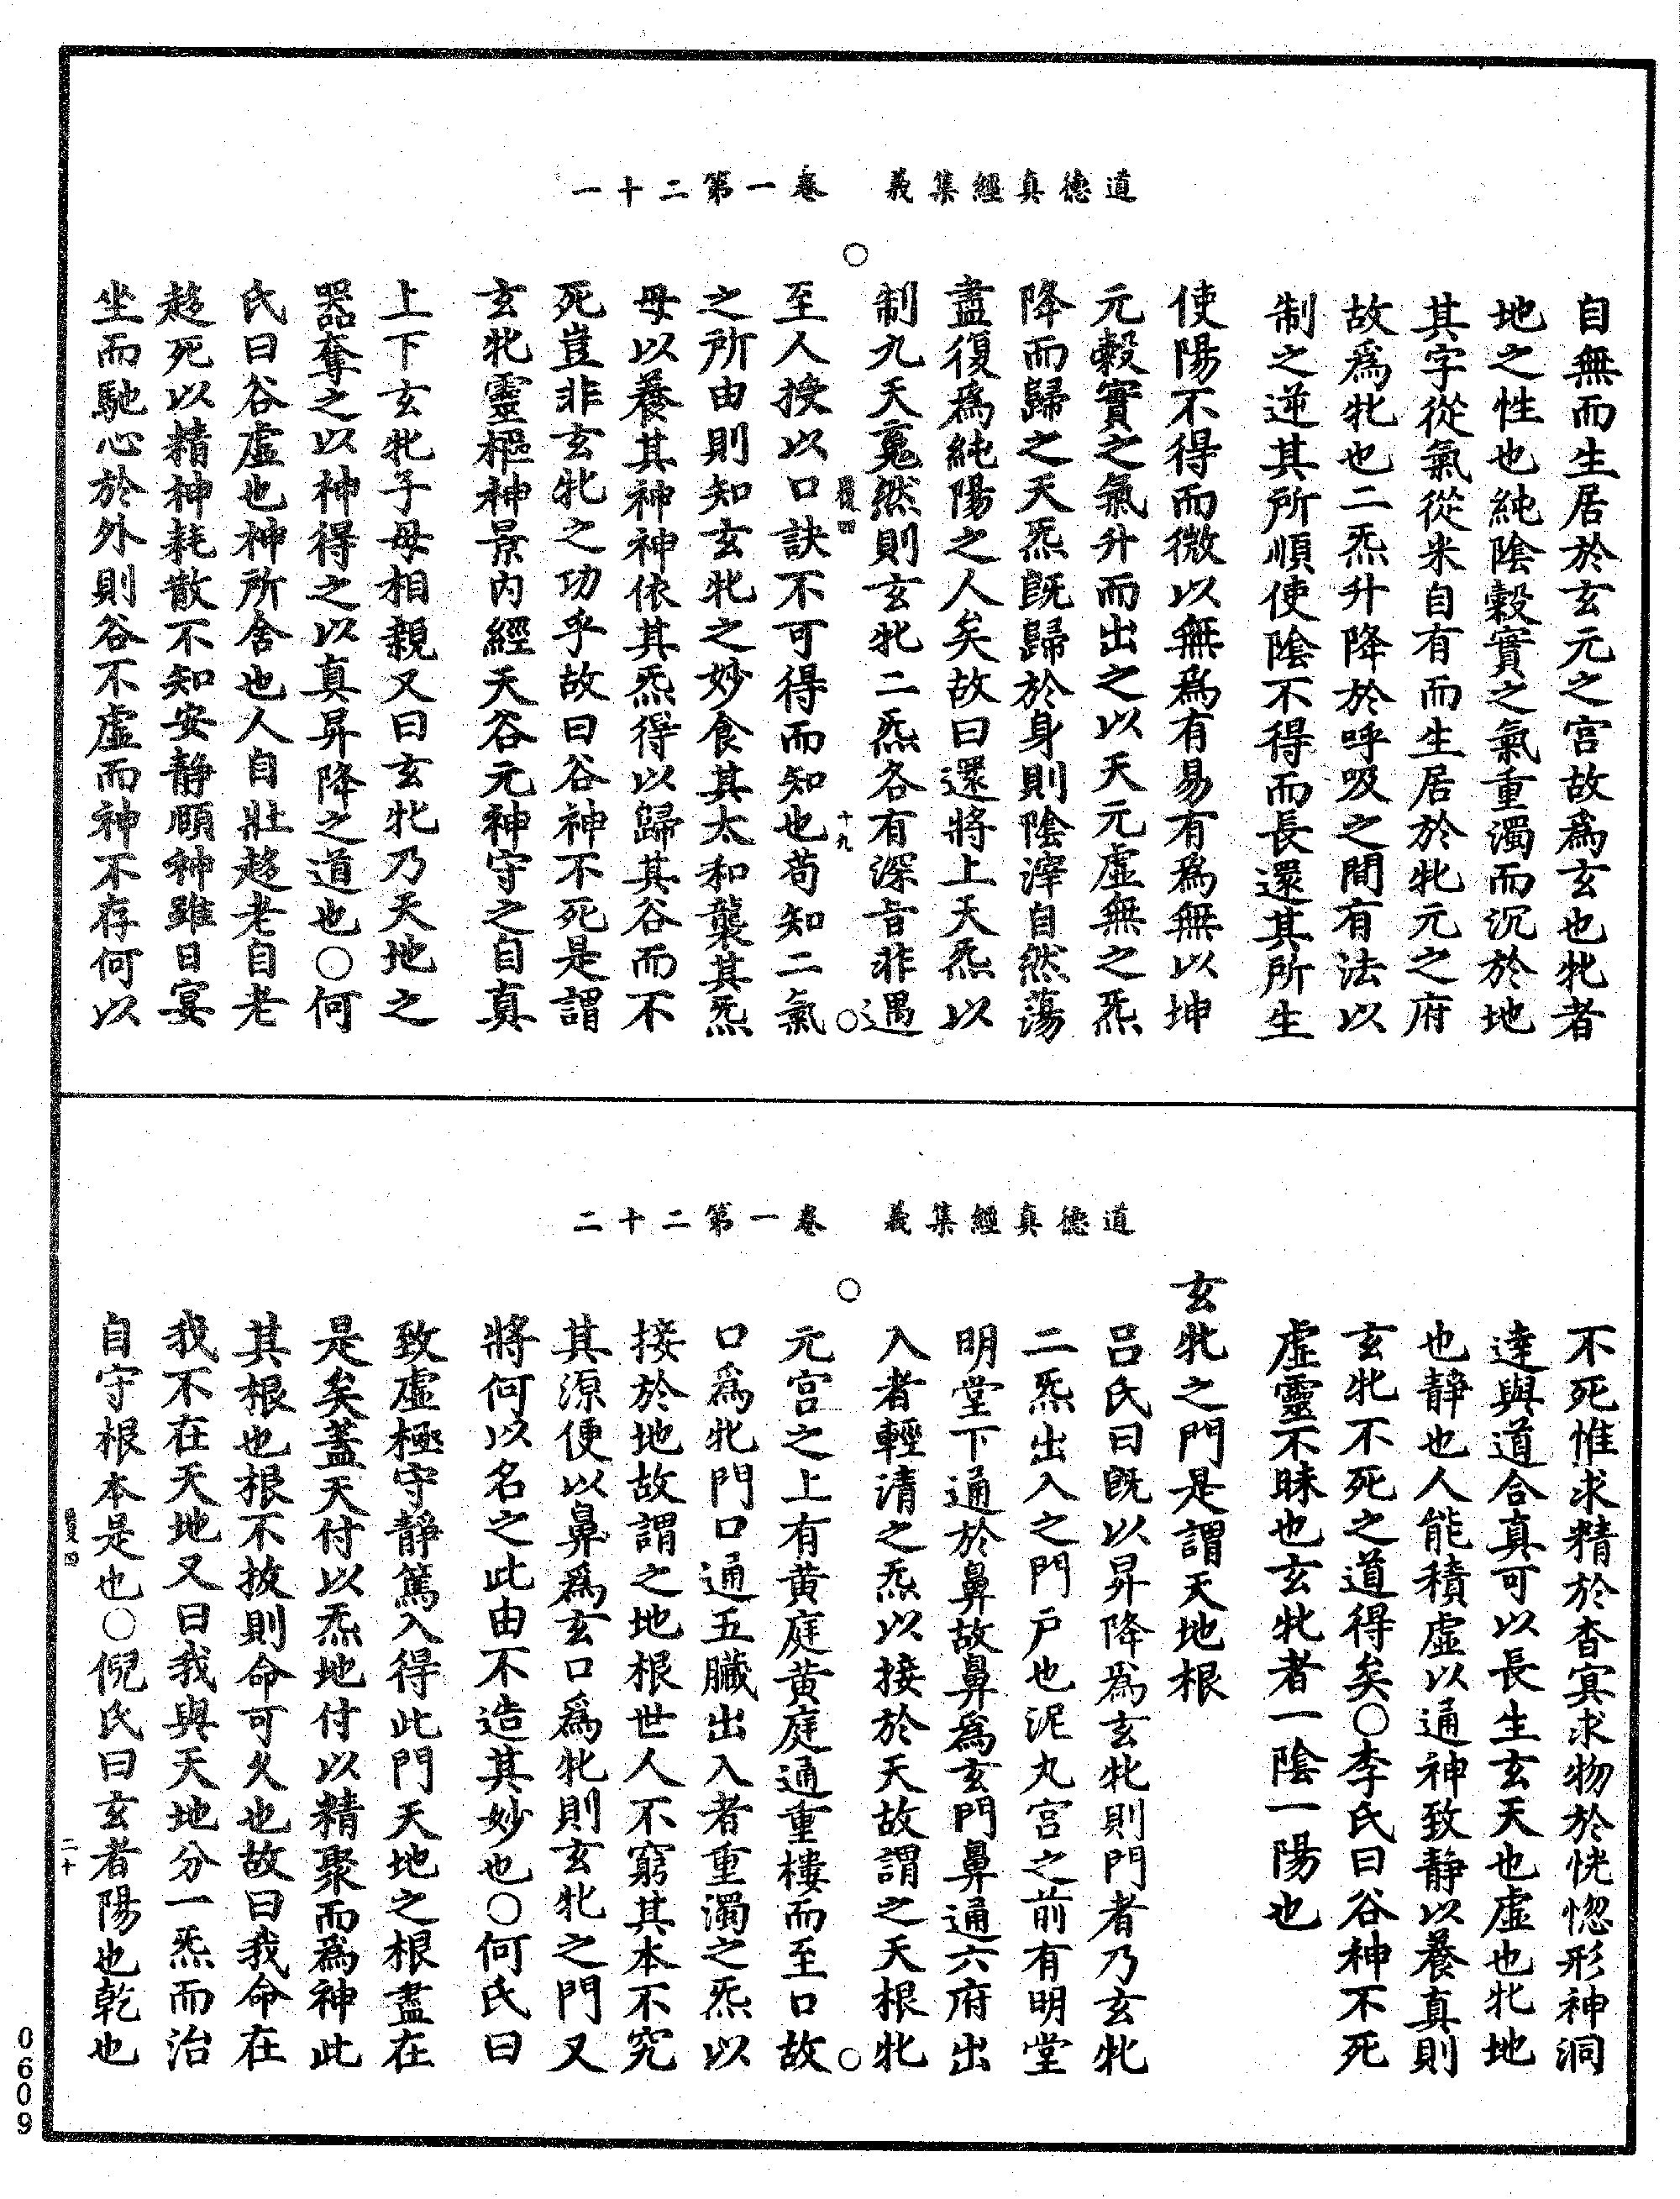 道德真經集義　卷一第二十一
自無而生居於玄元之宫故爲玄也牝者
地之性也純陰穀實之氣重濁而沉於地
其字從氣從米自有而生居於牝元之府
故爲牝也二炁升降於呼吸之間有法以
制之逆其所順使陰不得而長還其所生
使陽不得而微以無爲有易有爲無以坤
元穀實之氣升而出之以天元虚無之炁
降而歸之天炁旣歸於身則陰滓自然蕩
盡復爲純陽之人矣故曰還將上天炁以
制九天䰟然則玄牝二炁各有深旨非遇
十九
至人授以口訣不可得而知也苟知二氣
之所由則知玄牝之妙食其太和襲其炁
母以養其神神依其炁得以歸其谷而不
死豈非玄牝之功乎故曰谷神不死是謂
玄牝靈樞神景内經天谷元神守之自真
上下玄牝子母相親又曰玄牝乃天地之
器奪之以神得之以真昇降之道也〇何
氏曰谷虚也神所舍也人自壯趍老自老
趍死以精神耗散不知安静頤神雖日宴
坐而馳心於外則谷不虚而神不存何以
道德真經集義　卷一第二十二
不死惟求精於杳冥求物於恍惚形神洞
達與道合真可以長生玄天也虚也牝地
也静也人能積虚以通神致静以養真則
玄牝不死之道得矣〇李氏曰谷神不死
虚靈不昧也玄牝者一陰一陽也
玄牝之門是謂天地根
吕氏曰旣以昇降爲玄牝則門者乃玄牝
二炁出入之門户也泥丸宫之前有明堂
明堂下通於鼻故鼻爲玄門鼻通六府出
入者輕清之炁以接於天故謂之天根牝
元宫之上有黄庭黄庭通重樓而至口故
口爲牝門口通五臟出入者重濁之炁以
接於地故謂之地根世人不窮其本不究
其源便以鼻爲玄口爲牝則玄牝之門又
將何以名之此由不造其妙也〇何氏曰
致虚極守静篤入得此門天地之根盡在
是矣蓋天付以炁地付以精聚而爲神此
其根也根不拔則命可久也故曰我命在
我不在天地又曰我與天地分一炁而治
自守根本是也〇倪氏曰玄者陽也乾也
二十
0609